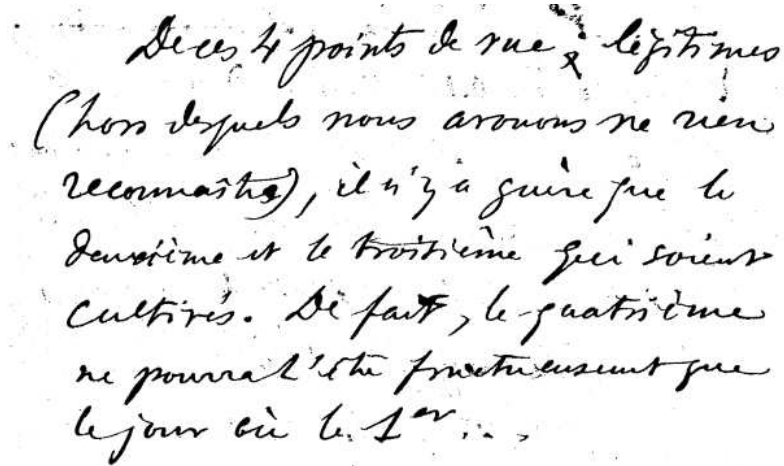 De ces 4 points de vue légitimes
(hors desquels nous avouons ne rien
reconnaître), il n'y a guère que le
deuxième et le troisième qui soient
cultivés. De fait, le quatrième
ne pourra l'être fructueusement que
le jour où le 1er...